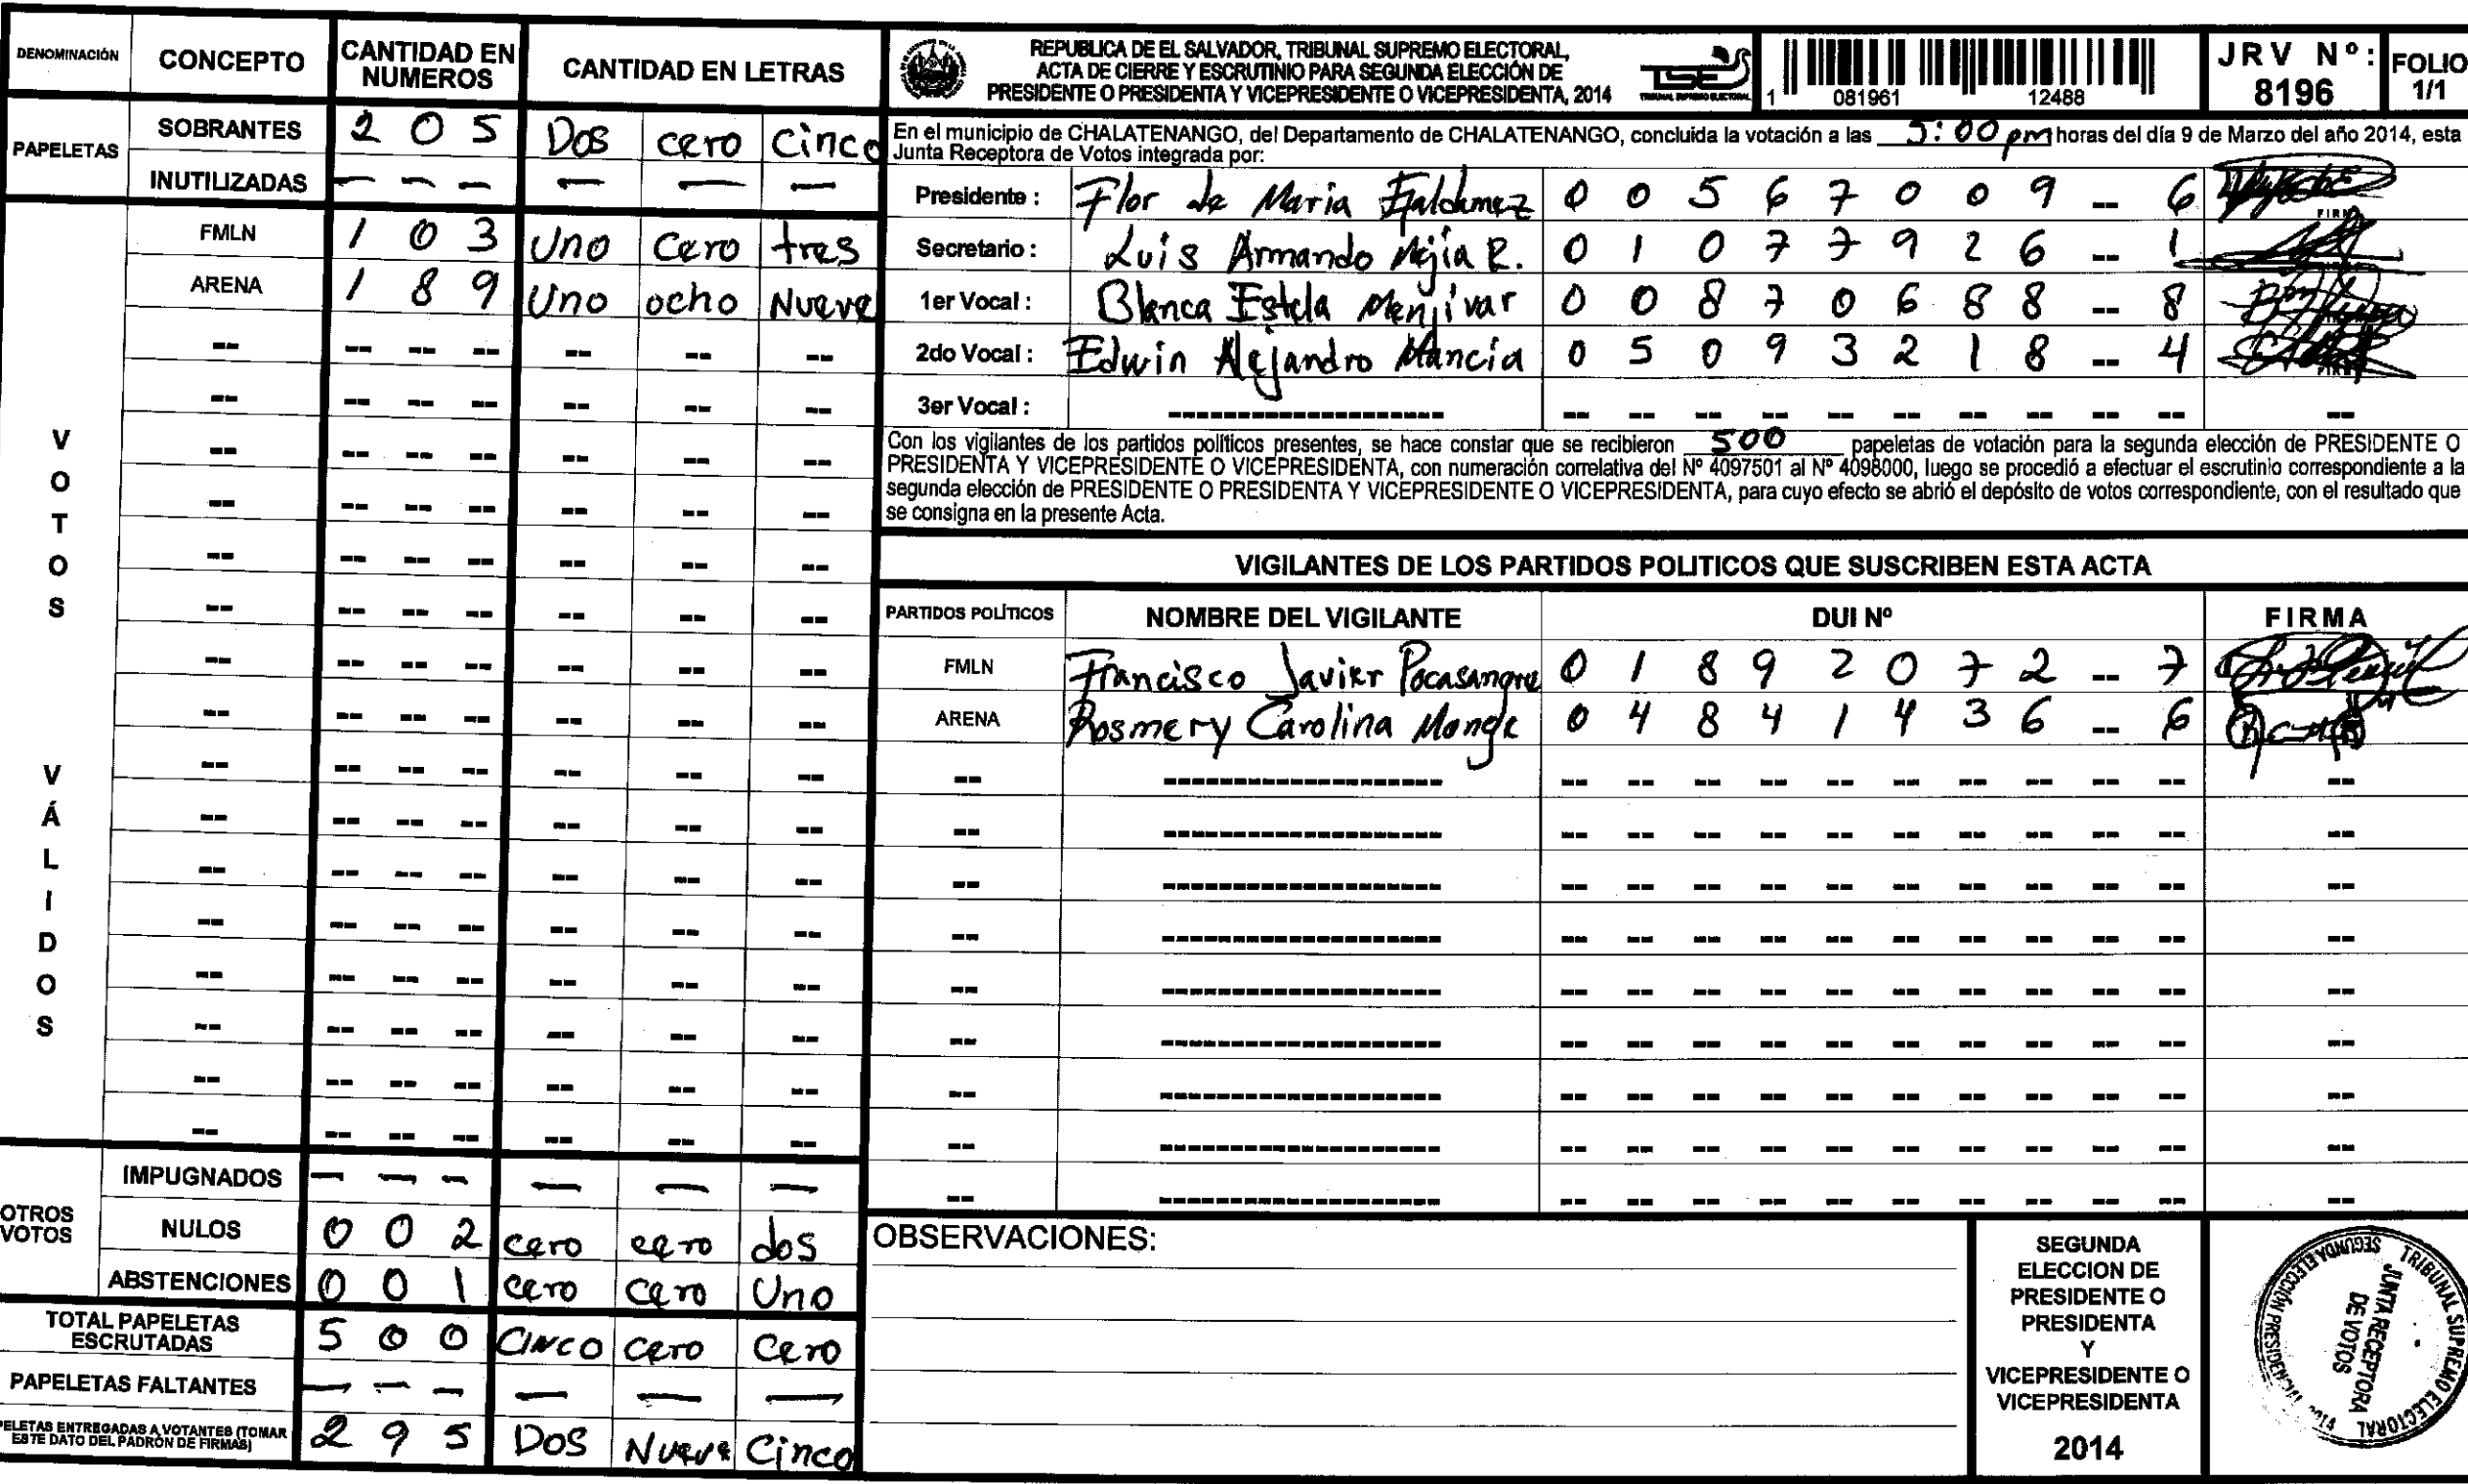 DENOMINACIÓN CONCEPTO CANTIDAD EN NUMEROS CANTIDAD EN LETRAS
PAPELETAS SOBRANTES 2 0 5 Dos cero Cinco
INUTILIZADAS — — — — — —
VOTOS VÁLIDOS
FMLN 1 0 3 Uno Cero tres
ARENA 1 8 9 Uno ocho Nueve
OTROS VOTOS
IMPUGNADOS — — — — — —
NULOS 0 0 2 cero cero dos
ABSTENCIONES 0 0 1 cero cero Uno
TOTAL PAPELETAS ESCRUTADAS 5 0 0 CINCO cero Cero
PAPELETAS FALTANTES — — — — — —
PELETAS ENTREGADAS A VOTANTES (TOMAR
ESTE DATO DEL PADRÓN DE FIRMAS) 2 9 5 DOS Nueve Cinco
REPUBLICA DE EL SALVADOR, TRIBUNAL SUPREMO ELECTORAL,
ACTA DE CIERRE Y ESCRUTINIO PARA SEGUNDA ELECCIÓN DE
PRESIDENTE O PRESIDENTA Y VICEPRESIDENTE O VICEPRESIDENTA, 2014
TSE
TRIBUNAL SUPREMO ELECTORAL
1 081961 12488
JRV Nº: 8196
FOLIO 1/1
En el municipio de CHALATENANGO, del Departamento de CHALATENANGO, concluida la votación a las 5:00 pm horas del día 9 de Marzo del año 2014, esta
Junta Receptora de Votos integrada por:
Presidente : Flor de Maria 0 0 5 6 7 0 0 9 -- 6
Secretario : Luis Armando Mejía R. 0 1 0 7 7 9 2 6 -- 1
1er Vocal : Blanca Estela Menjivar 0 0 8 7 0 6 8 8 -- 8
2do Vocal : Edwin Alejandro Mancía 0 5 0 9 3 2 1 8 -- 4
3er Vocal :
Con los vigilantes de los partidos políticos presentes, se hace constar que se recibieron 500 papeletas de votación para la segunda elección de PRESIDENTE O
PRESIDENTA Y VICEPRESIDENTE O VICEPRESIDENTA, con numeración correlativa del Nº 4097501 al Nº 4098000, luego se procedió a efectuar el escrutinio correspondiente a la
segunda elección de PRESIDENTE O PRESIDENTA Y VICEPRESIDENTE O VICEPRESIDENTA, para cuyo efecto se abrió el depósito de votos correspondiente, con el resultado que
se consigna en la presente Acta.
VIGILANTES DE LOS PARTIDOS POLITICOS QUE SUSCRIBEN ESTA ACTA
PARTIDOS POLÍTICOS NOMBRE DEL VIGILANTE DUI Nº FIRMA
FMLN Francisco Javier Pocasangre 0 1 8 9 2 0 7 2 -- 7
ARENA Rosmery Carolina Monge 0 4 8 4 1 4 3 6 -- 6
OBSERVACIONES:
SEGUNDA
ELECCION DE
PRESIDENTE O
PRESIDENTA
Y
VICEPRESIDENTE O
VICEPRESIDENTA
2014
TRIBUNAL SUPREMO ELECTORAL
SEGUNDA ELECCIÓN PRESIDENCIAL 2014
JUNTA RECEPTORA
DE VOTOS